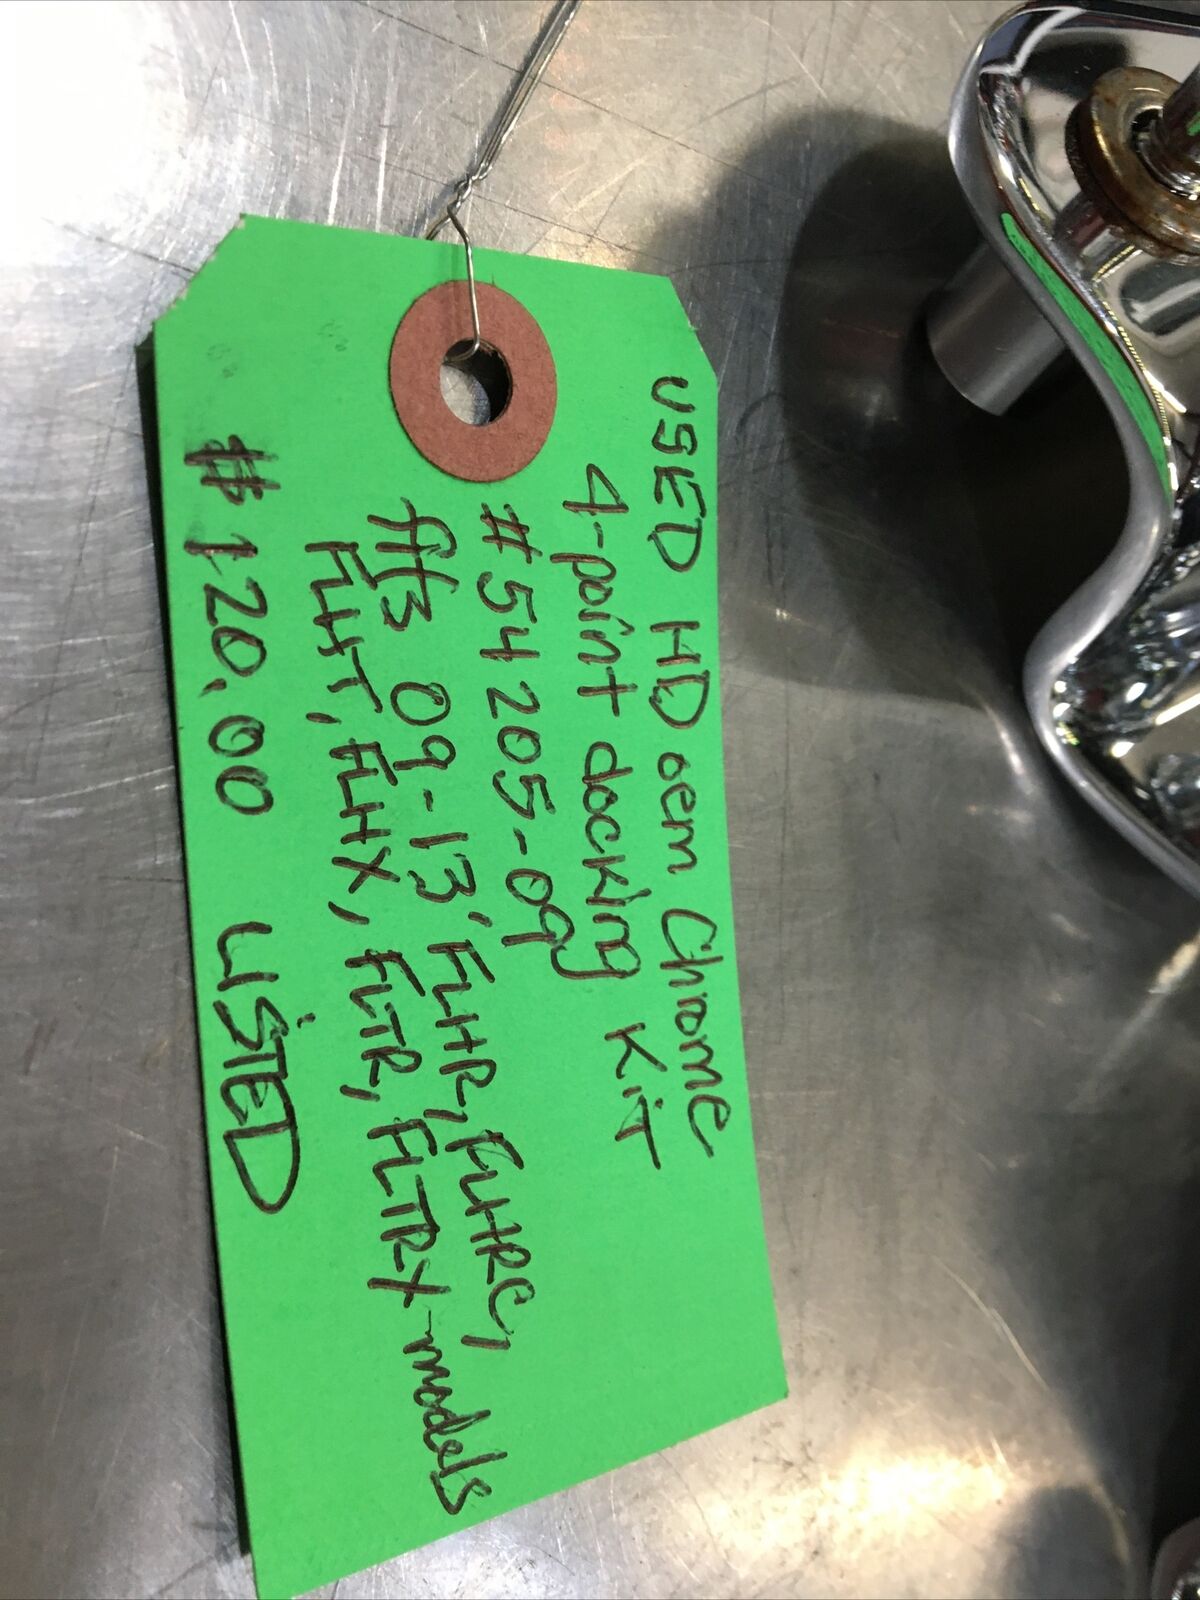 USED HD oem Chrome
4-point docking Kit
#54205-09
fits 09-13', FLHR, FLHRC,
FLHT, FLHX, FLTR, FLTRX models
#120.00 LISTED